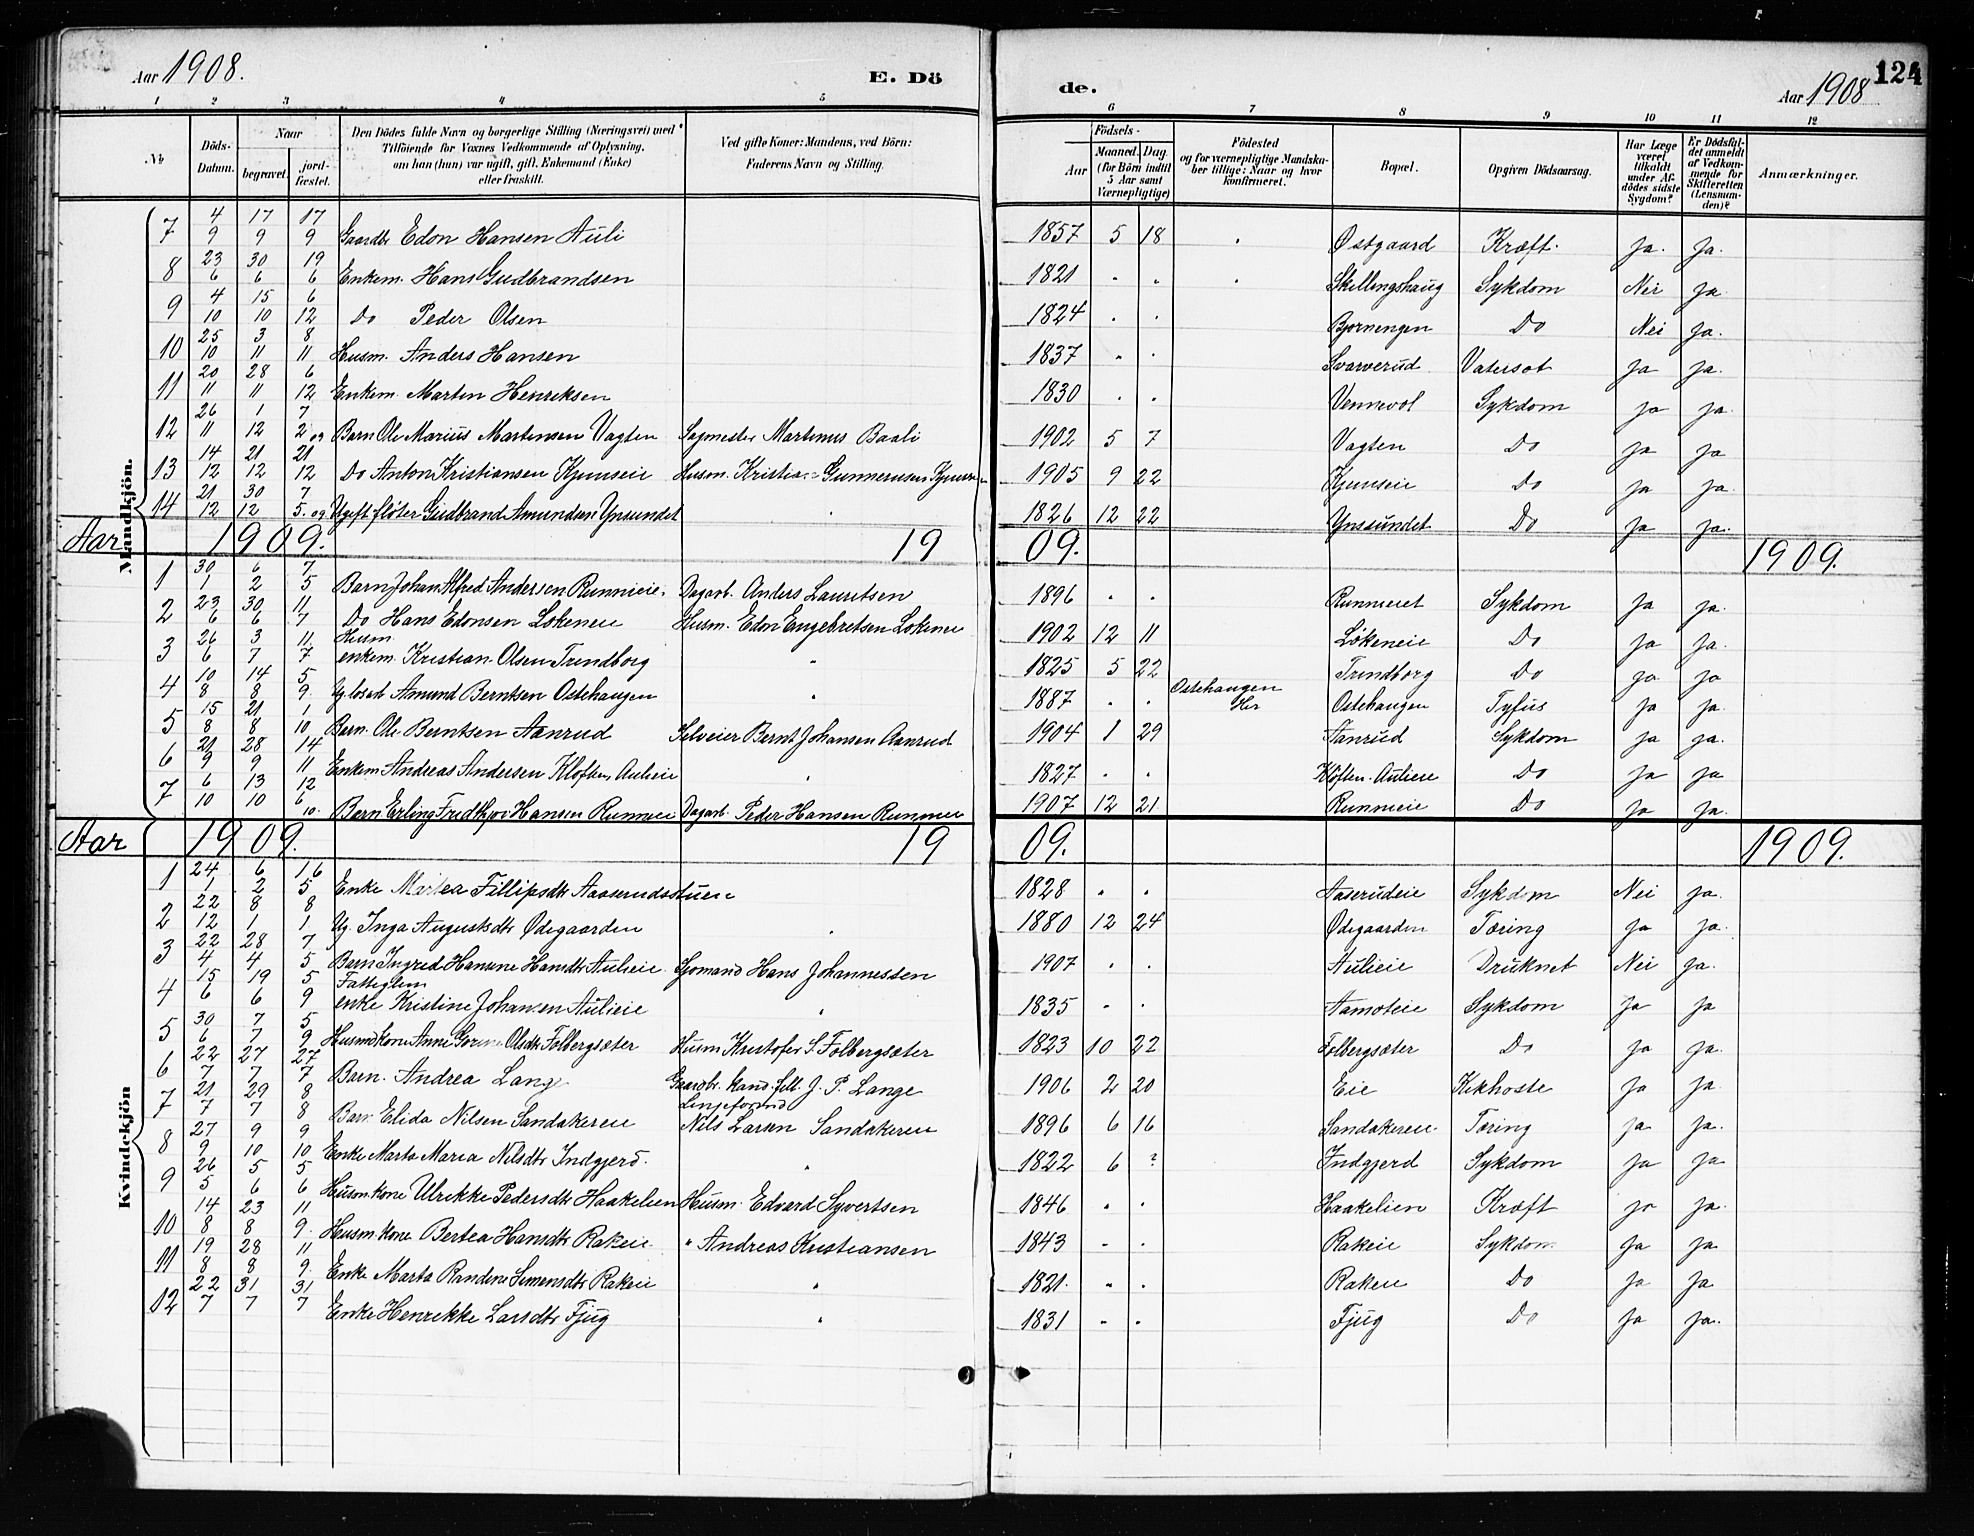 Aar 1908. E. Dö de. Aar 1908 124
1 2 3 4 5 6 7 8 9 10 11 12
No. Döds-Datum. Naar begravet. jord-fæstet. Den Dödes fulde Navn og borgerlige Stilling (Næringsvei) med Tilföiende for Voxnes Vedkommende af Oplysning, om han (hun) var ugift, gift, Enkemand (Enke) eller fraskilt. Ved gifte Koner: Mandens, ved Börn: Faderens Navn og Stilling. Födsels- Aar Maaned. Dag. (for Börn indtil 5 Aar samt Værnepligtige) Födested og for værnepligtige Mandskaber tillige: Naar og hvor konfirmeret. Bopæl. Opgiven Dödsaarsag. Har Læge været tilkaldt under Afdödes sidste Sygdom? Er Dödsfaldet anmeldt af Vedkommende for Skifteretten (Lensmanden)? Anmærkninger.
Mandkjön.
7 4/9 17/9 17/9 Gaardbr Edon Hansen Auli 1857 5 18 " Østgaard Kræft. Ja. Ja.
8 23/6 30/6 19/6 Enkem. Hans Gudbrandsen 1821 " " " Skillingshaug Sykdom Nei Ja
9 4/10 15/10 6/12 Do Peder Olsen 1824 " " Bjornengen Do Nei Ja.
10 25/10 3/11 8/11 Husm. Anders Hansen 1837 " " Svarverud Vatersot Ja Ja.
11 20/11 28/11 6/12 Enkem. Martin Henriksen 1830 " " Vennevol Sykdom Ja Ja.
12 26/11 1/12 7/2 09 Barn Ole Marius Martinsen Vagten Sagmester Martinus Baali 1902 5 7 Vagten Do Ja Ja
13 14/12 21/12 21/12 Do Anton Kristiansen Kjumseie Husm. Kristian Gunnerusen 1905 9 22 Kjumseie Do Ja Ja.
14 21/12 30/12 7/5 09 Ugift fløter Gudbrand Amundsen Ynsundet " 1826 12 22 Ynssundet Do Ja Ja.
Aar 1909. 19 09. 1909.
1 30/1 6/2 7/5 Barn Johan Alfred Andersen Runnieie. Dagarb. Anders Lauritsen 1896 " " Runnieiet Sykdom Ja Ja.
2 23/6 30/6 11/7 Do Hans Edonsen Løkeneie Husm. Edon Engebretsen Løkeneie 1902 12 11 Løkeneie Do Ja Ja.
3 26/6 3/7 11/7 Husm. enkem. Kristian Olsen Trindborg " 1825 5 22 Trindborg Do Ja Ja
4 10/8 14/8 5/9 Ug. losarb Amund Berntsen Ostehaugen " 1887 " " Ostehaugen Her Ostehaugen Tyfus Ja Ja.
5 15/8 21/8 1/10 Barn. Ole Berntsen Aanrud Selveier Bernt Johansen Aanrud 1904 1 29 Aanrud Sykdom Ja Ja.
6 21/9 28/9 14/11 Enkem. Andreas Andersen Kløften, Aulieie " 1827 " " Kløften. Aulieie Do Ja Ja
7 6/10 13/10 12/6 10. Barn Erling Fridtjov Hansen Runnieie Dagarb. Peder Hansen Runnieie 1907 12 21 Runnieie Do Ja Ja.
Aar 1909. 19 09. 1909.
Kvindekjön
1 24/1 6/2 16/5 Enke Martea Fillipsdtr Aaserudsstuen 1828 " " Aaserudeie Sykdom Nei Ja.
2 22/12 8/1 8/1 Ug. Inga Augustsdtr Ødegaarden " 1880 12 24 Ødegaarden Tæring Ja Ja.
3 22/4 28/4 7/5 Barn Ingred Hansine Hansdtr Aulieie. Sjomand Hans Johannessen 1907 " " Aulieie Druknet Nei Ja.
4 15/6 19/6 5/9 Fattiglem enke Kristine Johansen Aulieie " 1835 " " Aamoteie Sykdom Ja Ja
5 30/6 7/7 5/9 Husmdkone Anne Gorine Olsdtr Folbergsæter Husm Kristofer S. Folbergsæter 1823 10 22 Folbergsæter Do Ja Ja.
6 22/7 27/7 27/7 Barn. Andrea Lange Gaardbr. kand. fill. J. P. Lange 1906 2 20 Eie Kikhoste Ja Ja
7 21/7 29/7 8/8 Barn: Elida Nilsen Sandakereie Linjeformd Nils Larsen Sandakereie 1896 6 16 Sandakereie Tæring Ja Ja.
8 27/9 9/10 9/10 Enke Marta Maria Nilsdtr Indgjerd. " 1822 6 ? Indgjerd Sykdom Ja Ja
9 26/5 5/6 5/6 Husm.kone Ulrikke Pedersdtr Haakelien Husm. Edvard Syvertsen 1846 " " Haakelien Kræft Ja Ja.
10 14/8 23/8 11/9. Husm.kone Bertea Hansdtr Rakeie " Andreas Kristiansen 1843 " " Rakeie Sykdom Ja Ja
11 19/8 28/8 11/9. Enke Marta Randine Simensdtr Rakeie " 1821. " " Rakeie Do Ja Ja
12 22/7 31/7 31/7 Enke Henrikke Larsdtr Fjug " 1831 " " Fjug Do Ja Ja.